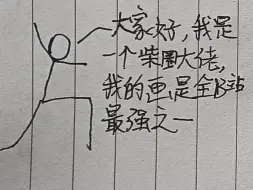 大家好,我是
一个柴圈大佬,
我的画是全B站
最强之一